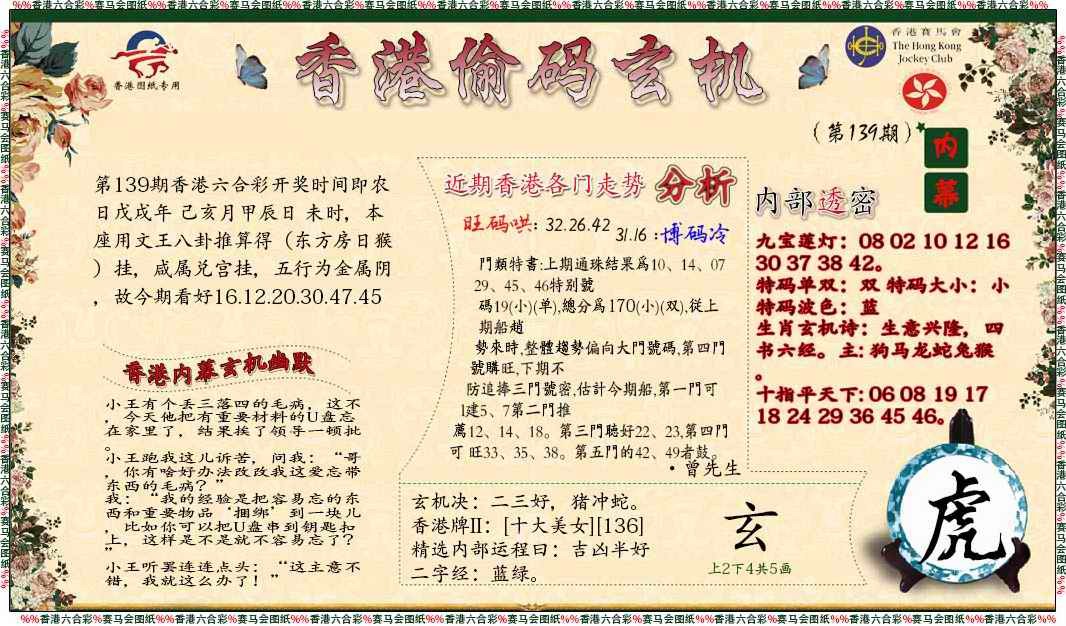 %%香港六合彩%赛马会图纸%%香港六合彩%赛马会图纸%%香港六合彩%赛马会图纸%%香港六合彩%赛马会图纸%%香港六合彩%赛马会图纸%%香港六合彩%赛马会图纸%%香港六合彩%%
香港图纸专用
香港偷码玄机
香港賽馬會
The Hong Kong
Jockey Club
(第139期)
内
幕
第139期香港六合彩开奖时间即农
日戊戌年 己亥月甲辰日 未时，本
座用文王八卦推算得（东方房日猴
）挂，咸属兑宫挂，五行为金属阴
，故今期看好16.12.20.30.47.45
香港内幕玄机幽默
小王有个丢三落四的毛病，这不
，今天他把有重要材料的U盘忘
在家里了，结果挨了领导一顿批
。
小王跑我这儿诉苦，问我：“哥
，你有啥好办法改改我这爱忘带
东西的毛病？”
我：“我的经验是把容易忘的东
西和重要物品‘捆绑’到一块儿
，比如你可以把U盘串到钥匙扣
上，这样是不是就不容易忘了？
”
小王听罢连连点头：“这主意不
错，我就这么办了！”
近期香港各门走势 分析
旺码哄: 32.26.42
31.16 :博码冷
門類特書:上期通珠結果爲10、14、07
29、45、46特别號
碼19(小)(单),總分爲170(小)(双),從上
期船趙
勢來時,整體趨勢偏向大門號碼,第四門
號購旺,下期不
防追捧三門號密,估計今期船,第一門可
l建5、7第二門推
薦12、14、18。第三門聴好22、23,第四門
可 旺33、35、38。第五門的42、49者鼓。
·曾先生
玄机决：二三好，猪冲蛇。
香港牌II：[十大美女][136]
精选内部运程日：吉凶半好
二字经：蓝绿。
玄
上2下4共5画
内部透密
九宝莲灯：08 02 10 12 16
30 37 38 42。
特码单双：双 特码大小：小
特码波色：蓝
生肖玄机诗：生意兴隆，四
书六经。主: 狗马龙蛇兔猴
。
十指平天下: 06 08 19 17
18 24 29 36 45 46。
虎
%%香港六合彩%赛马会图纸%%香港六合彩%赛马会图纸%%香港六合彩%赛马会图纸%%香港六合彩%赛马会图纸%%香港六合彩%赛马会图纸%%香港六合彩%赛马会图纸%%香港六合彩%%